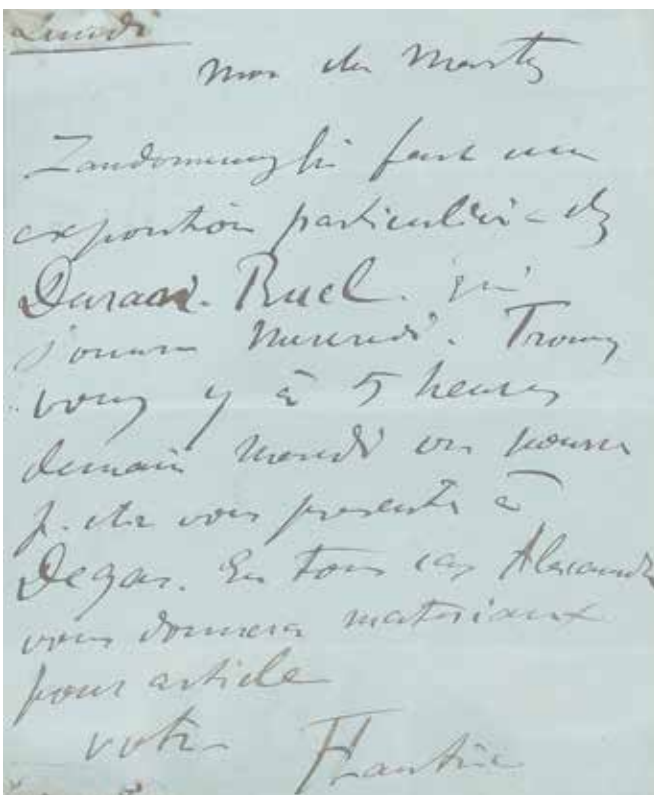 Lundi
Mon cher Marty
Zandomeneghi fait une
exposition particulière chez
Durand-Ruel. qui
s'ouvre Mercredi. Trouvez
vous y à 5 heures
demain Mardi on pourra
p. etre vous presenter à
Degas. En tous cas Alexandre
vous donnera materiaux
pour article
votre